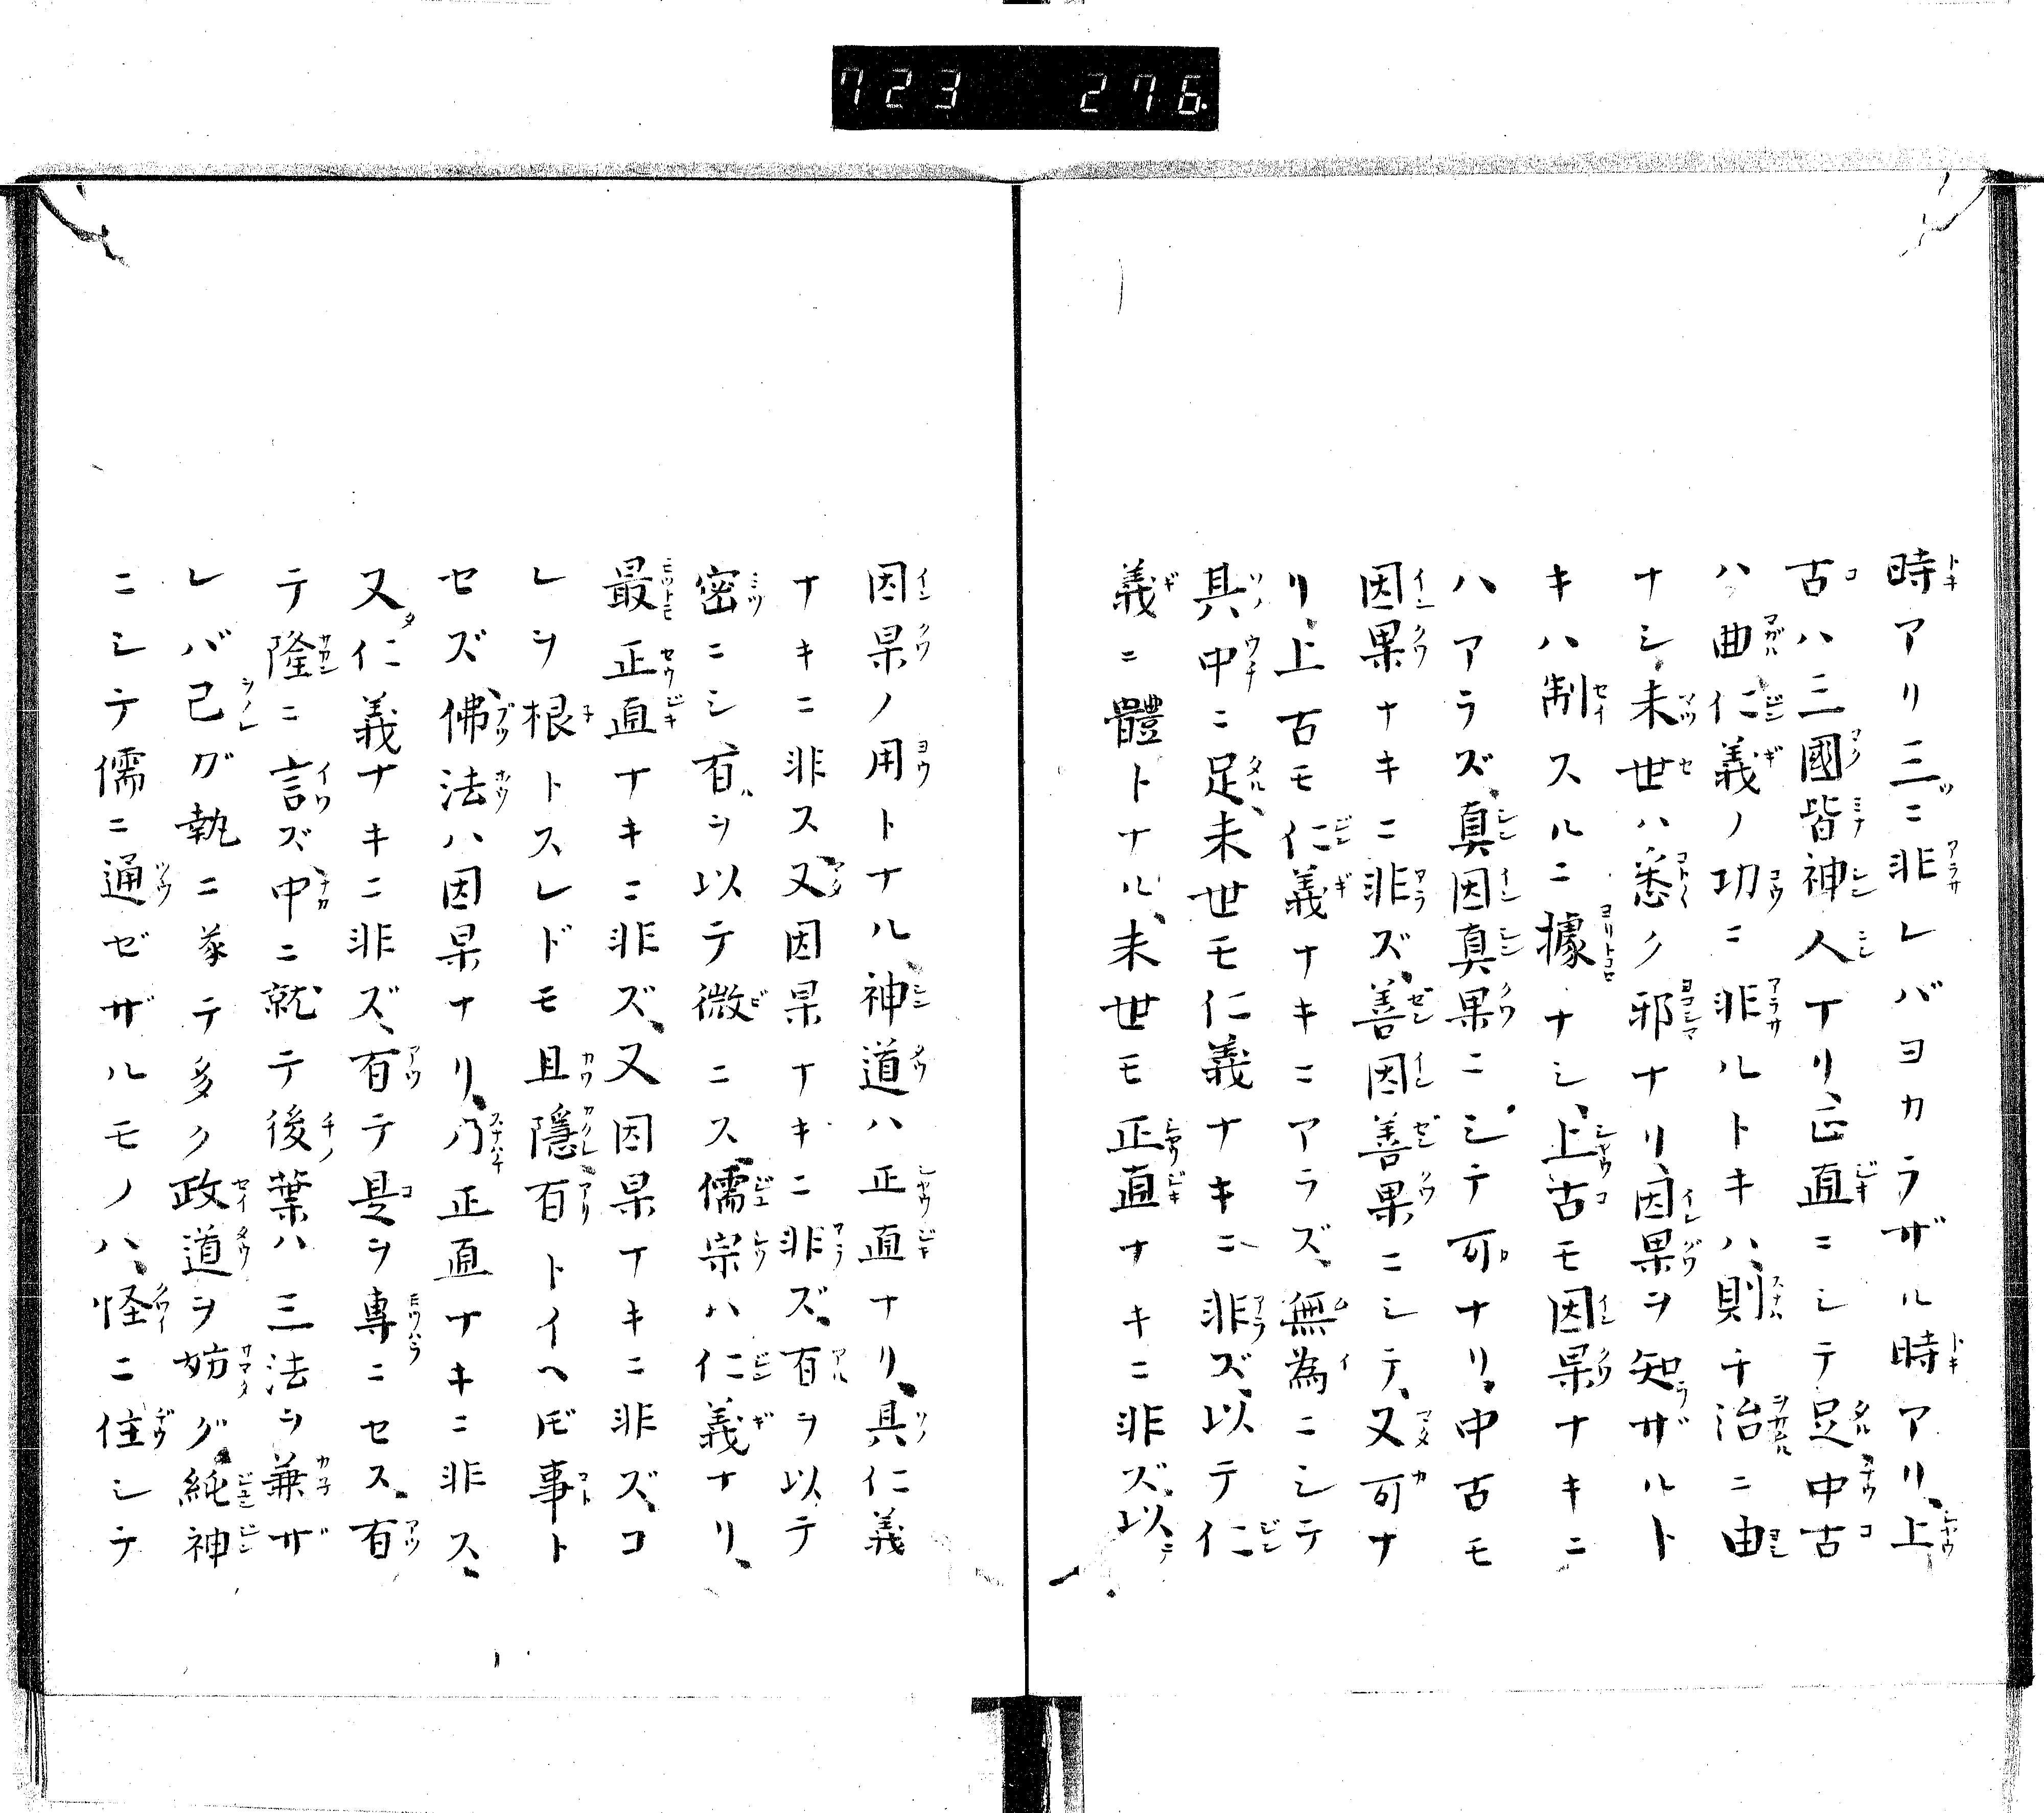 723 276.
時アリ三ニ非レバヨカラザル時アリ、上
古ハ三國皆神人アリ、正直ニシテ足中古
ハ曲仁義ノ功ニ非ルトキハ、則チ治ニ由
ナシ、末世ハ悉ク邪ナリ、因果ヲ知ザルト
キハ制スルニ據ナシ、上古モ因果ナキニ
ハアラズ、真因真果ニシテ可ナリ、中古モ
因果ナキニ非ズ、善因善果ニシテ、又可ナ
リ、上古モ仁義ナキニアラズ、無為ニシテ
具中ニ足、末世モ仁義ナキニ非ズ、以テ仁
義ニ體トナル、末世モ正直ナキニ非ズ、以
因果ノ用トナル、神道ハ正直ナリ、具仁義
ナキニ非ス又因果ナキニ非ズ、有ヲ以テ
密ニシ、有ヲ以テ微ニス、儒宗ハ仁義ナリ、
最正直ナキニ非ズ、又因果ナキニ非ズ、コ
レヲ根トスレドモ且隱、有トイヘ𪜈事ト
セズ、佛法ハ因果ナリ、乃正直ナキニ非ス、
又仁義ナキニ非ズ、有テ是ヲ專ニセス、有
テ隆ニ言ズ、中ニ就テ後葉ハ三法ヲ兼ザ
レバ己ガ執ニ募テ多ク政道ヲ妨グ、純神
ニシテ儒ニ通ゼザルモノハ、怪ニ住シテ